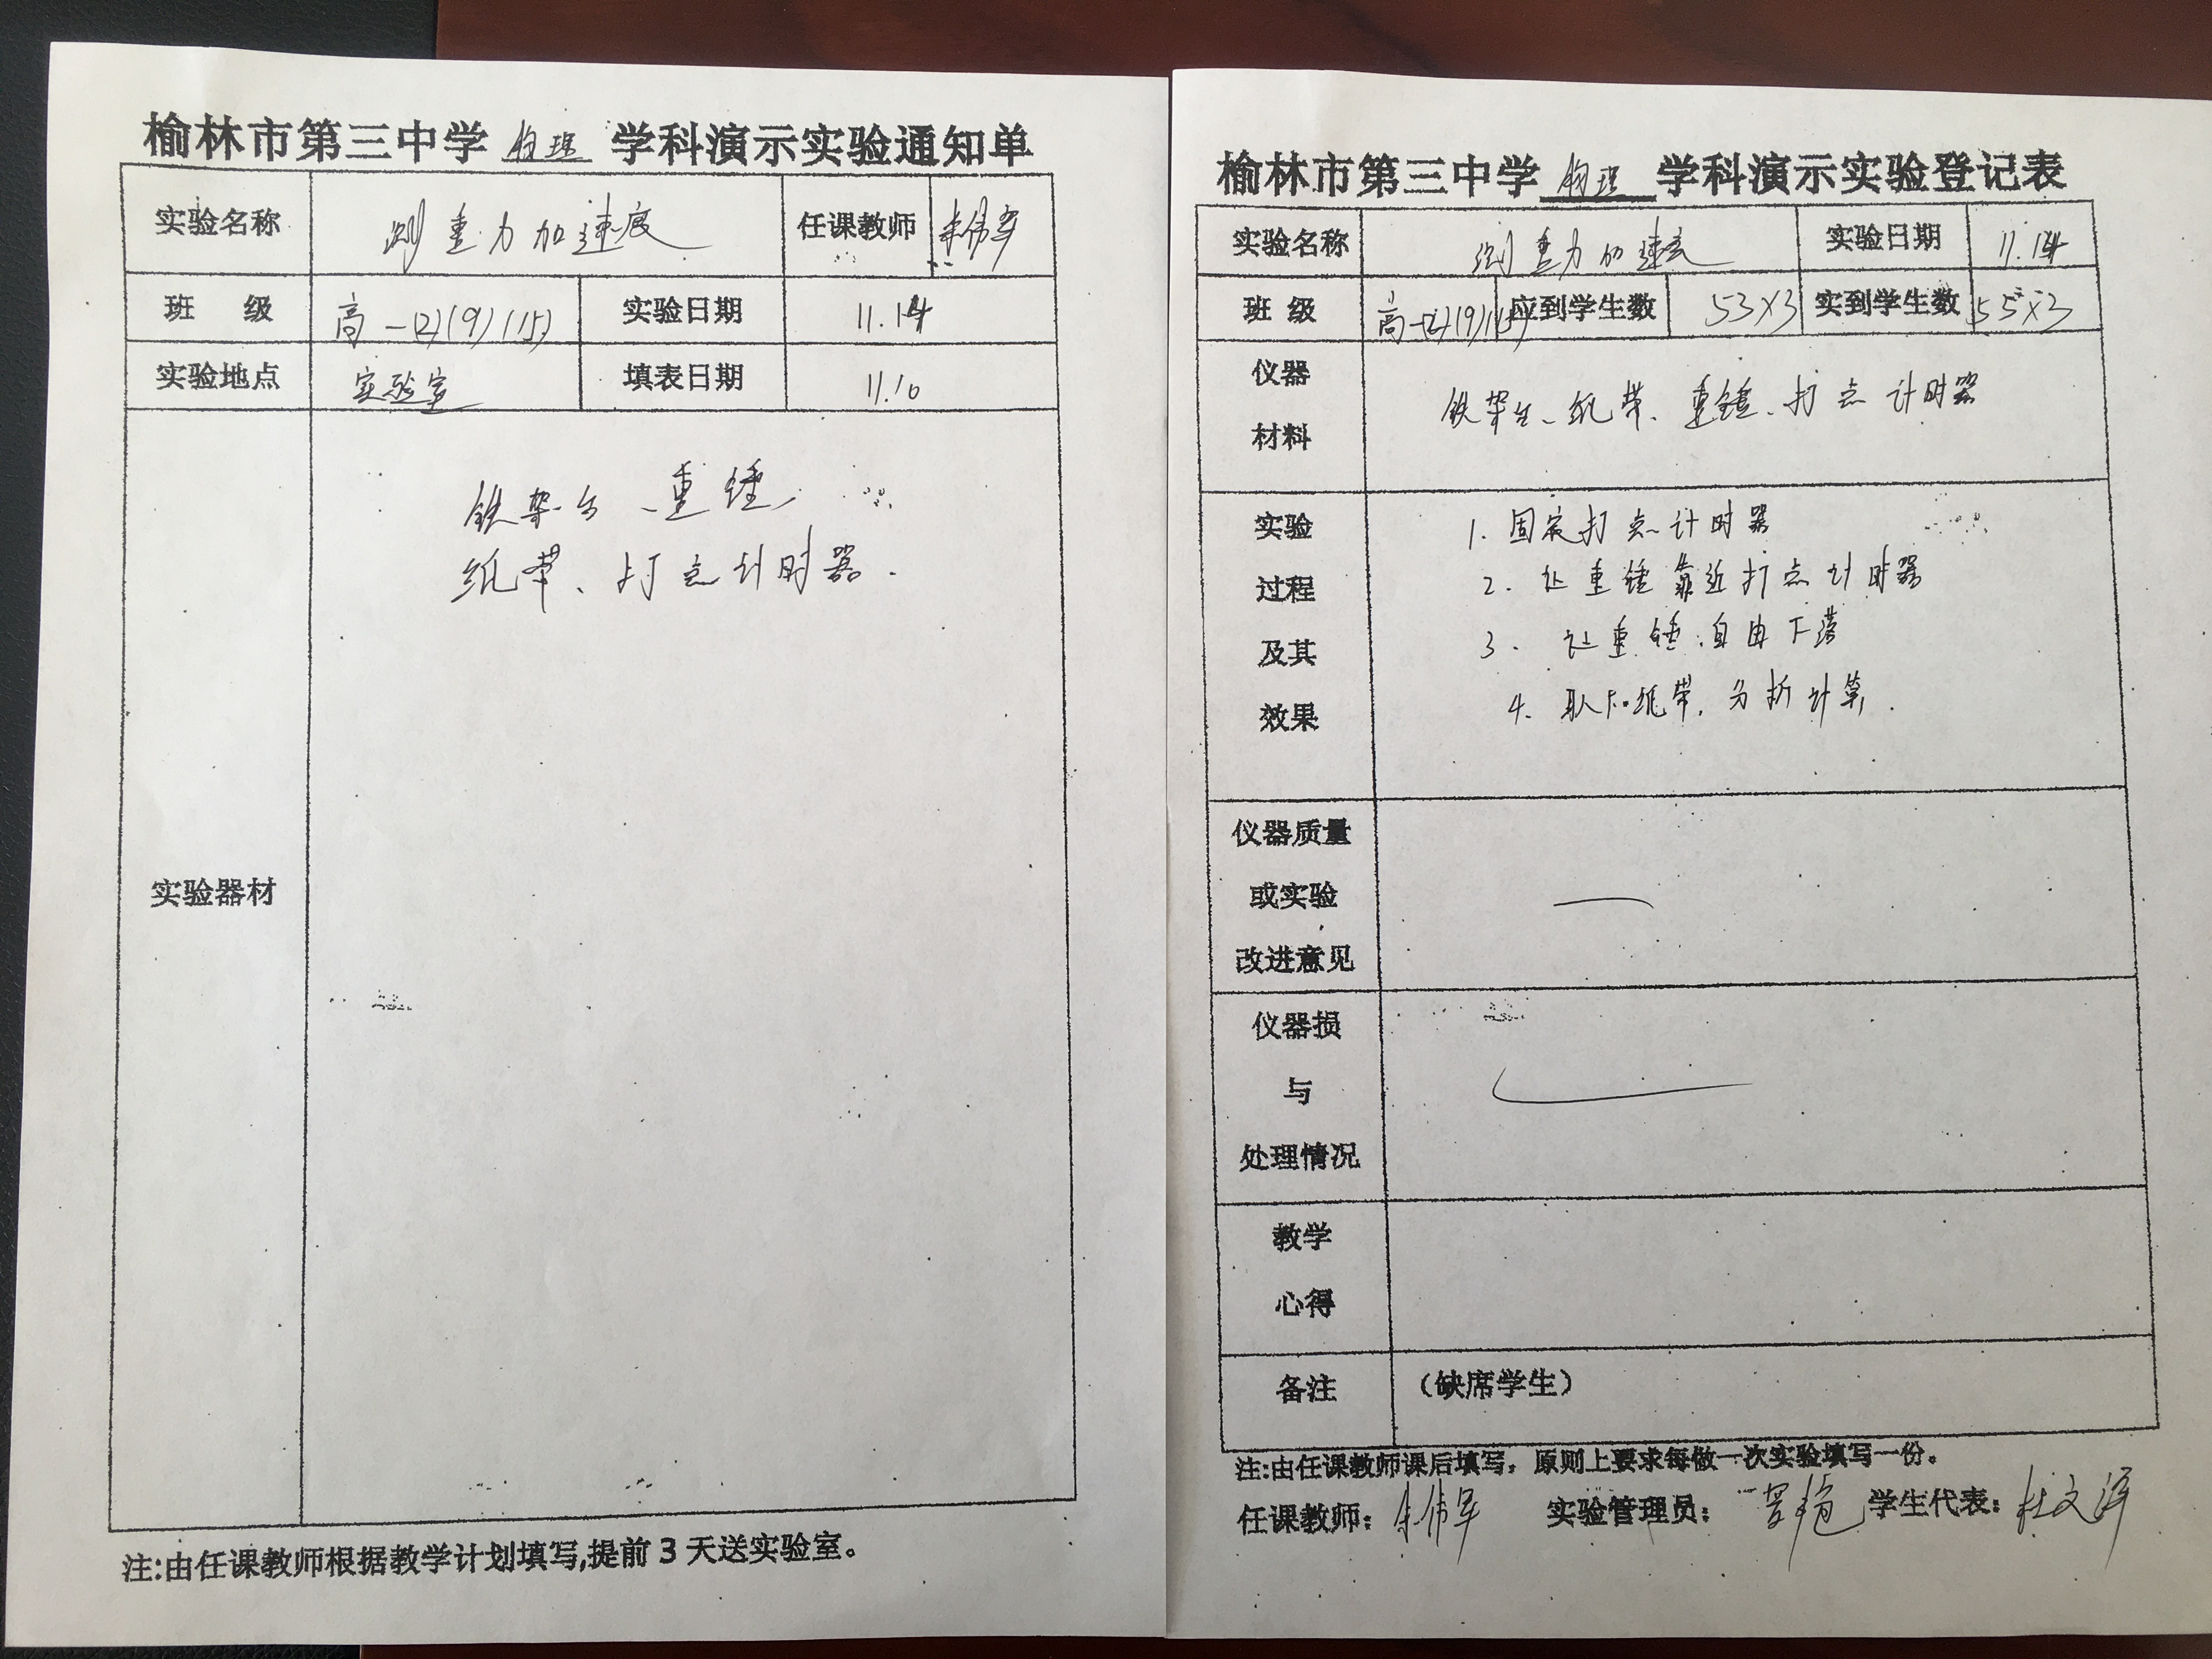 榆林市第三中学 物理 学科演示实验通知单
实验名称 测重力加速度 任课教师 朱伟军
班 级 高一(2)(9)(15) 实验日期 11.14
实验地点 实验室 填表日期 11.10
实验器材
铁架台、重锤
纸带、打点计时器.
注:由任课教师根据教学计划填写,提前3天送实验室。
榆林市第三中学 物理 学科演示实验登记表
实验名称 测重力加速度 实验日期 11.14
班 级 高一(2)(9)(15) 应到学生数 53×3 实到学生数 55×3
仪器
材料
铁架台、纸带、重锤、打点计时器
实验
过程
及其
效果
1. 固定打点计时器
2. 让重锤靠近打点计时器
3. 让重锤自由下落
4. 取下纸带,分析计算.
仪器质量
或实验
改进意见
仪器损
与
处理情况
教学
心得
备注 (缺席学生)
注:由任课教师课后填写,原则上要求每做一次实验填写一份。
任课教师: 朱伟军 实验管理员: 学生代表: 杜文